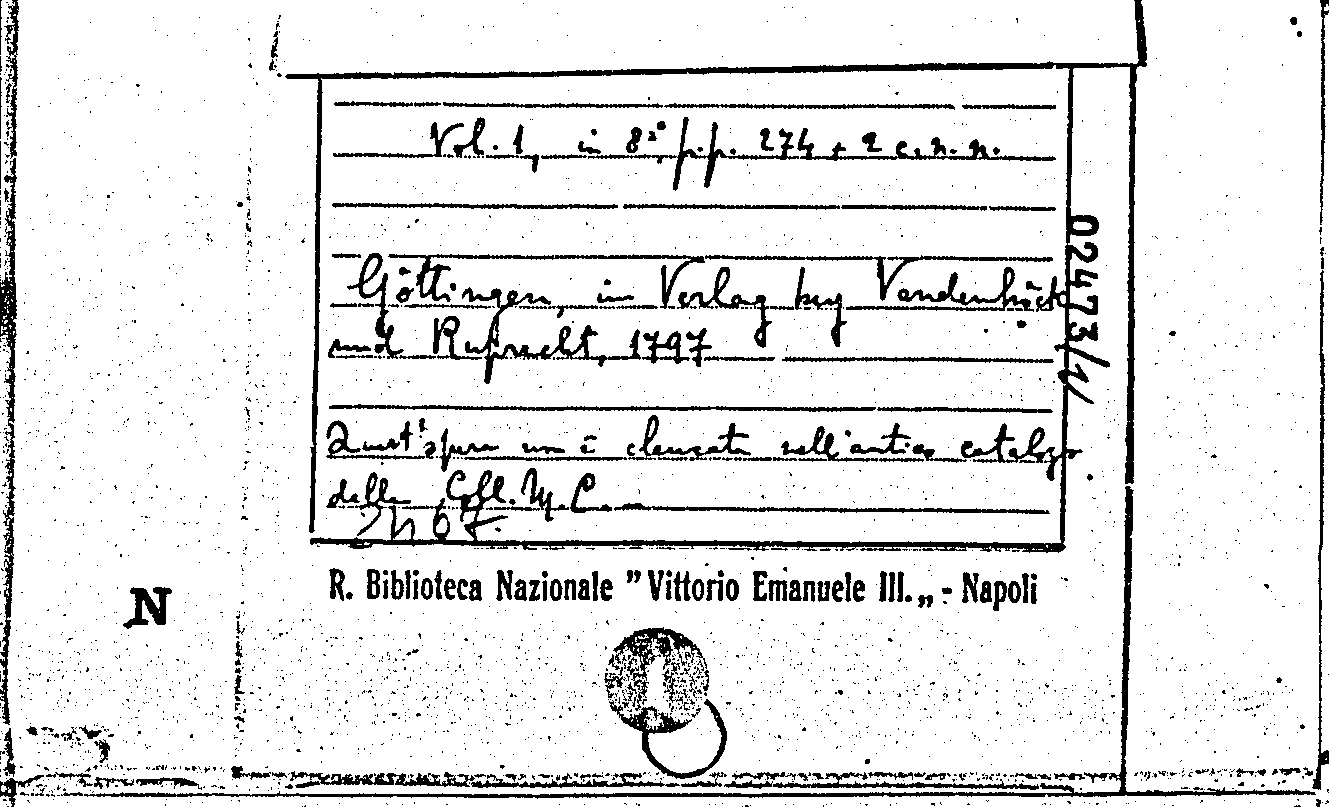 Vol. 1, in 8°, pp. 274 + 2 c. n. n.
Göttingen, im Verlag bey Vandenhöck
und Ruprecht, 1797
Quest'opera non è elencata nell'antico catalogo
della Coll. M. C.
R. Biblioteca Nazionale "Vittorio Emanuele III.„ - Napoli
N
02473/1/